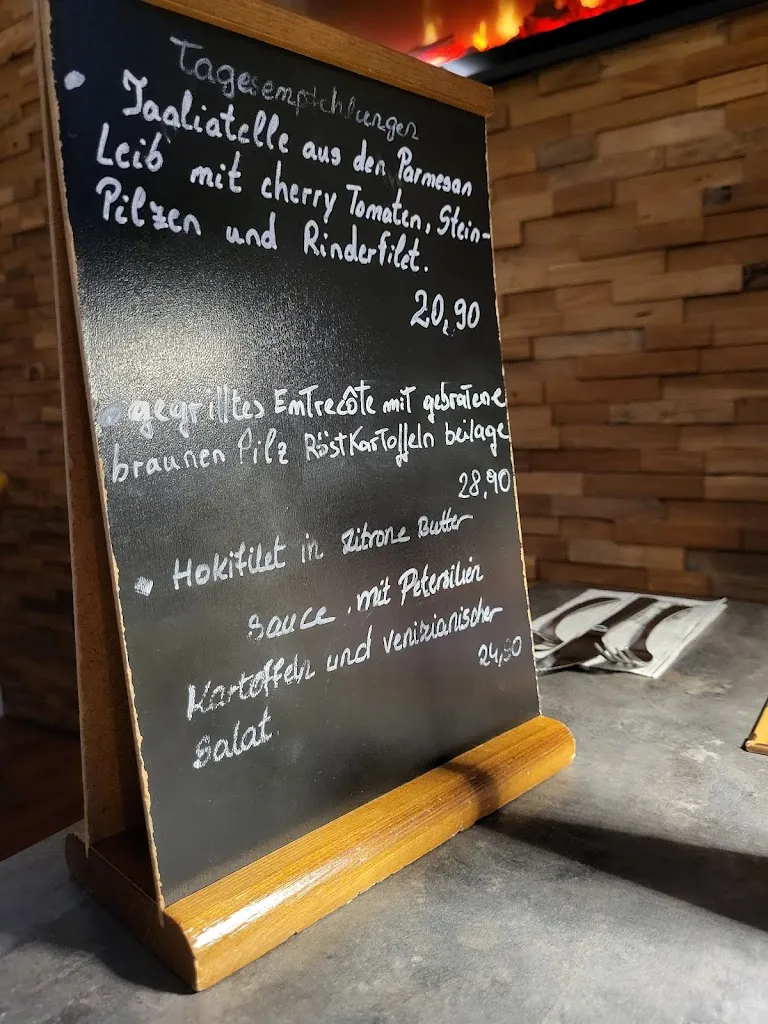 Tagesempfehlungen
Tagliatelle aus den Parmesan
Leib mit cherry Tomaten, Stein-
Pilzen und Rinderfilet.
20,90
gegrilltes Entrecôte mit gebratene
braunen Pilz RöstKartoffeln beilage
28,90
Hokifilet in Zitrone Butter
Sauce . mit Petersilien
Kartoffeln und venizianischer
24,90
Salat.